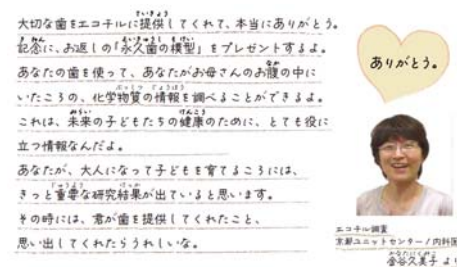 大切な歯をエコチルに提供してくれて、本当にありがとう。
記念に、お返しの「永久歯の模型」をプレゼントするよ。
あなたの歯を使って、あなたがお母さんのお腹の中に
いたころの、化学物質の情報を調べることができるよ。
これは、未来の子どもたちの健康のために、とても役に
立つ情報なんだよ。
あなたが、大人になって子どもを育てるころには、
きっと重要な研究結果が出ていると思います。
その時には、君が歯を提供してくれたこと、
思い出してくれたらうれしいな。
ありがとう。
エコチル調査
京都ユニットセンター/内科医
金谷久美子 より